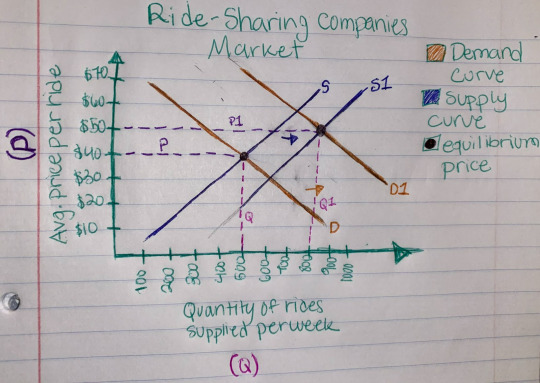 Ride-Sharing Companies
Market
Demand
curve
Supply
curve
equilibrium
price
(P)
Avg. price per ride
$70
$60
$50
$40
$30
$20
$10
S
S1
P1
P
Q
Q1
D1
D
100
200
300
400
500
600
700
800
900
1000
Quantity of rides
supplied per week
(Q)